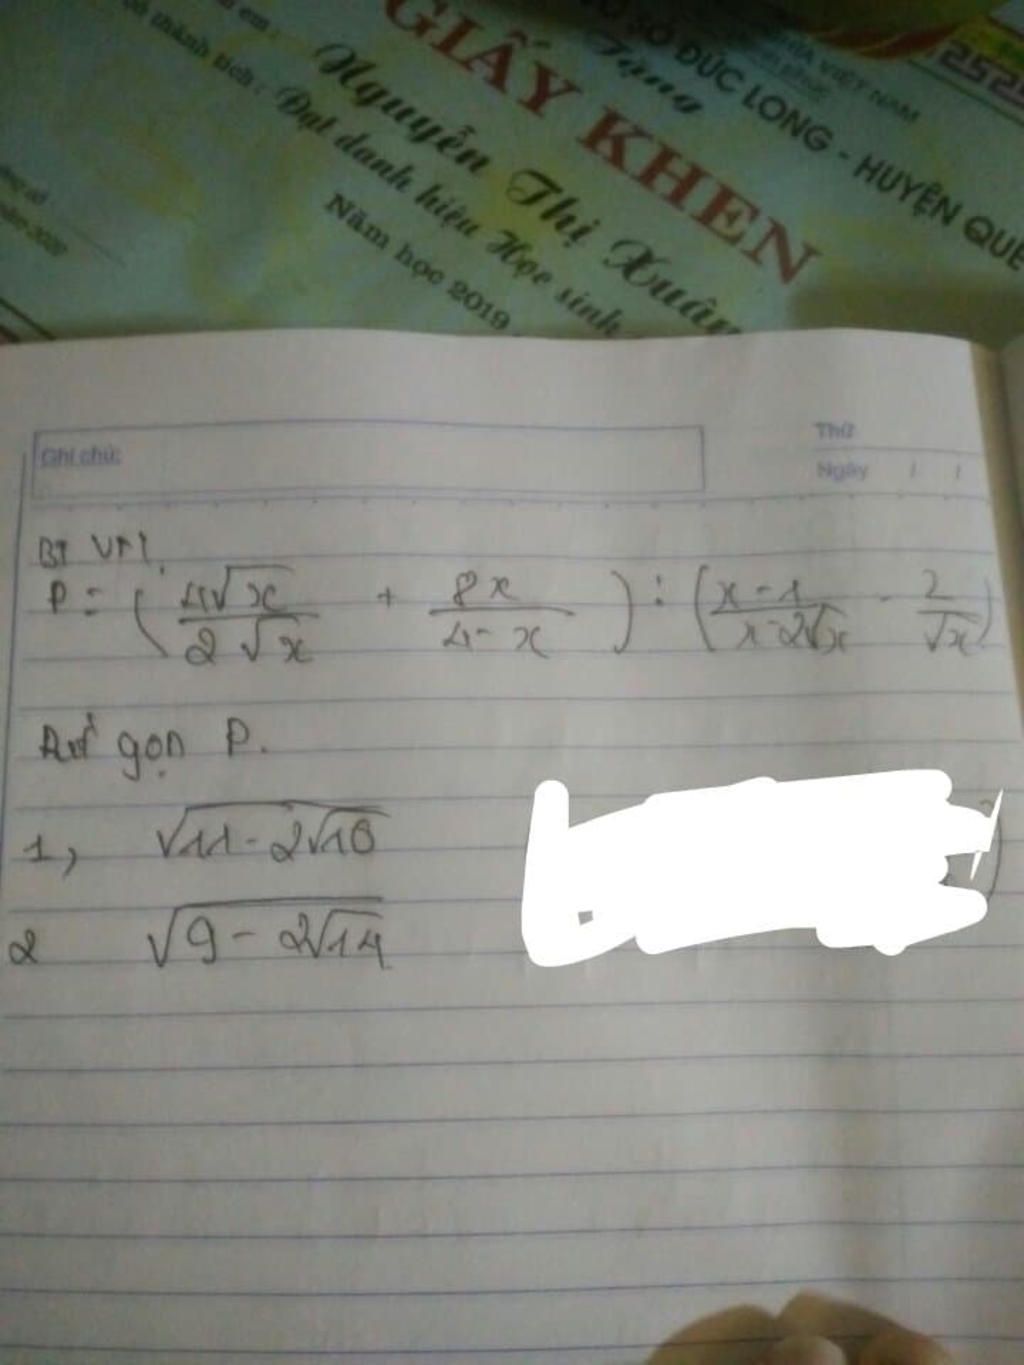 GIẤY KHEN
SỞ ĐỨC LONG - HUYỆN QUẾ
NGHĨA VIỆT NAM
Tặng
em :
Nguyễn Thị Xuân
thành tích : Đạt danh hiệu Học sinh
Năm học 2019
Ghi chú:
Thứ
Ngày / /
P = ( 4√x / 2 √x + 8x / 4 - x ) : ( x - 1 / x - 2√x - 2 / √x )
gọn P.
1, √11 - 2√10
2 √9 - 2√14